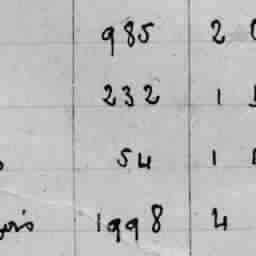 985 2
232 1
54 1
1998 4